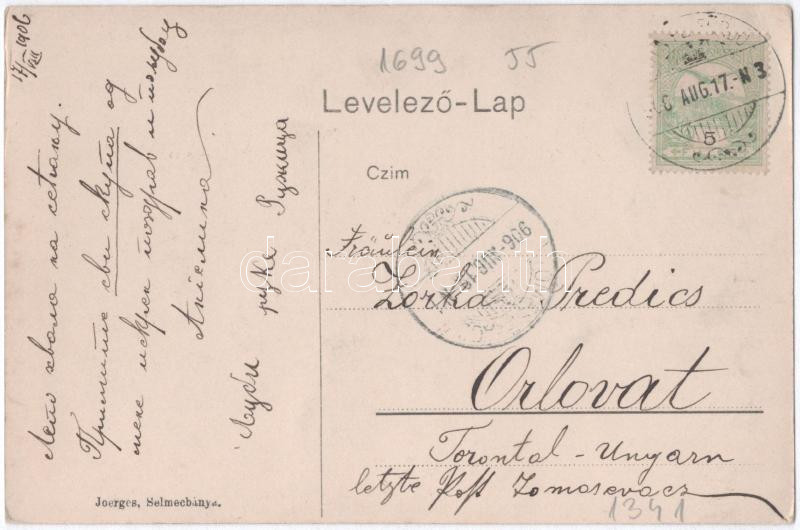 17/VIII 1906
Лепо хвала на сећању.
Примите сви скупа од
мене искрен поздрав и пољубац
Љуби руке Ружица
1699 55
Levelező-Lap
Czim
AUG.17.-N3
5
906 AUG 18
Fräulein
Zorka Predics
Orlovat
Torontal - Ungarn
letzte Post Tomasevacz
1341
Joerges, Selmecbánya.
darabanth